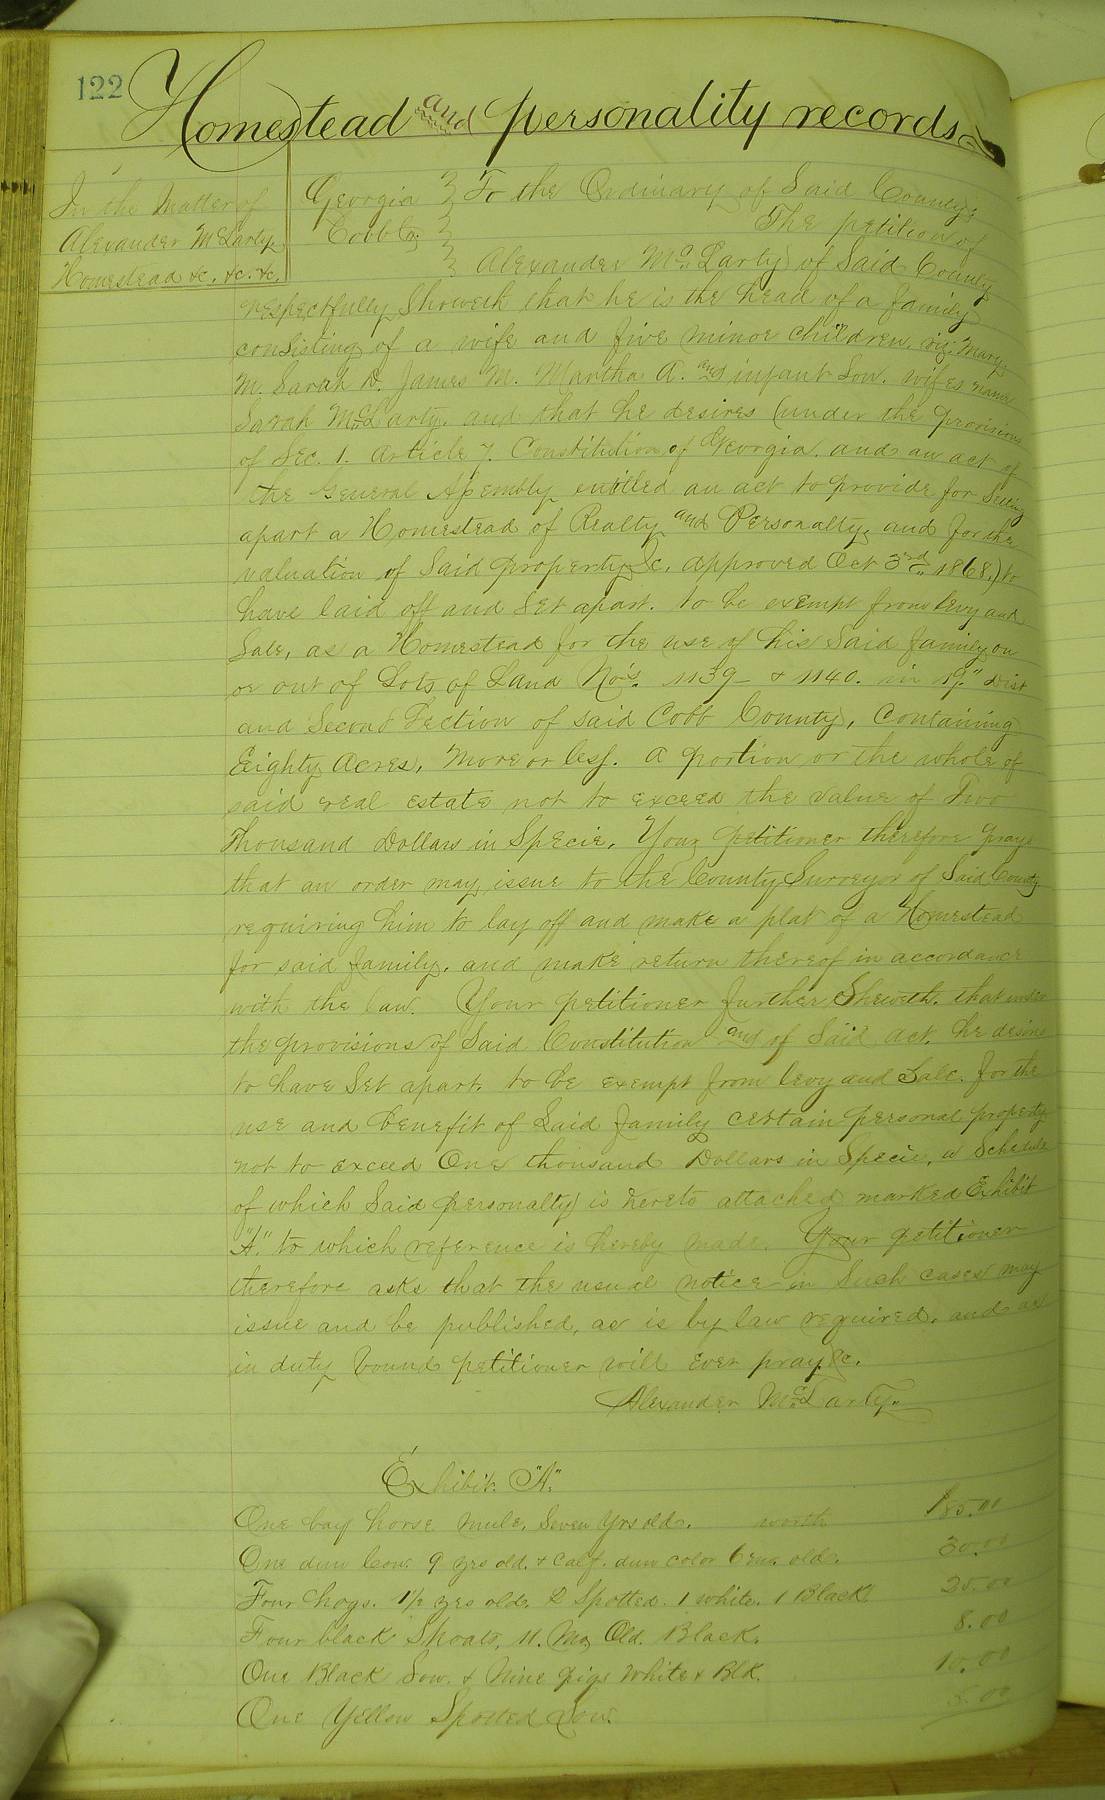 122
Homestead and personality records
In the Matter of
Alexander McLarty
Homestead &c. &c. &c.
Georgia
Cobb Co.
To the Ordinary of Said County;
The petition of
Alexander McLarty of Said County
respectfully Showeth that he is the head of a family
consisting of a wife and five minor children, viz. Mary
M. Sarah D. James M. Martha A. and infant Son. wifes name
Sarah McLarty. and that he desires (under the provisions
of Sec. 1. Article 7. Constitution of Georgia. and an act of
the General Assembly entitled an act to provide for Setting
apart a Homestead of Realty and Personalty, and for the
valuation of Said property &c. approved Oct 3rd 1868.) to
have laid off and Set apart. to be exempt from levy and
Sale, as a Homestead for the use of his Said family on
or out of Lots of Land No's. 1139 & 1140. in 19" Dist
and Second Section of said Cobb County, Containing
Eighty Acres, More or less. a portion or the whole of
said real estate not to exceed the value of Two
Thousand Dollars in Specie, Your petitioner therefore prays
that an order may issue to the County Surveyor of Said County
requiring him to lay off and make a plat of a Homestead
for said family. and make return thereof in accordance
with the law. Your petitioner further Sheweth. that under
the provisions of Said Constitution and of Said act. he desires
to have Set apart. to be exempt from levy and Sale. for the
use and benefit of Said family certain personal property
not to exceed One thousand Dollars in Specie, a Schedule
of which Said personalty is hereto attached marked Exhibit
"A." to which reference is hereby made. Your petitioner
therefore asks that the usual notice in Such cases may
issue and be published, as is by law required. and as
in duty bound petitioner will ever pray &c.
Alexander McLarty.
Exhibit "A"
One bay horse mule. Seven Yrs old. worth 185.00
One dun Cow. 9 yrs old. & Calf. dun color 6 old. 30.00
Four hogs. 1½ yrs old. 2 Spotted. 1 white. 1 Black 25.00
Four black Shoats, 11. Mo. Old. Black. 8.00
One Black Sow. & Nine pigs White & Blk. 10.00
One Yellow Spotted Sow. 5.00